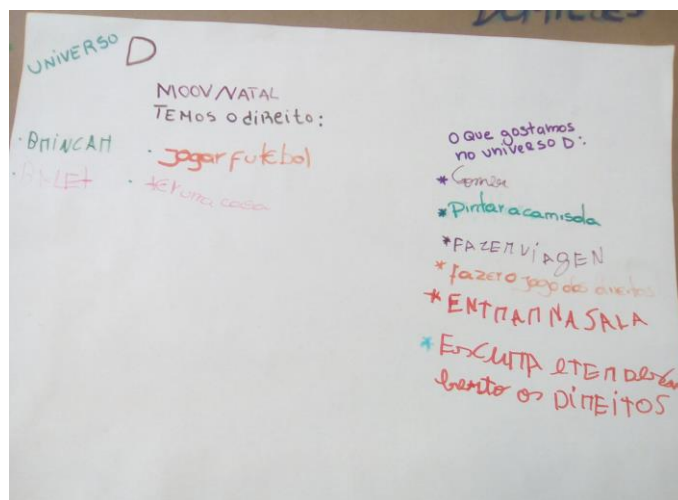 UNIVERSO D
MOOV/NATAL
TEMOS O diREITO:
· BRINCAR
· jogar futebol
· ter uma casa
O Que gostamos
no universo D:
* Comer
* Pintar a camisola
* FAZER VIAGEN
* fazer o jogo dos direitos
* ENTRAR NA SALA
* EsCUTA e TER Desco
berto os DiREiTOS